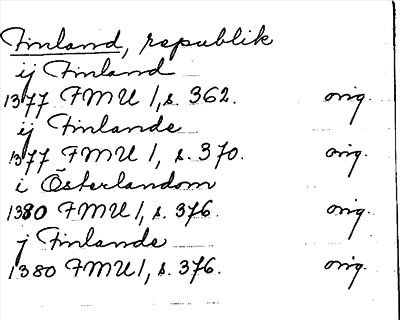 Finland, republik
ij Finland
1377 FMU 1, s. 362. orig.
ij Finlande
1377 FMU 1, s. 370. orig.
i Österlandom
1380 FMU 1, s. 376. orig.
j Finlande
1380 FMU 1, s. 376. orig.